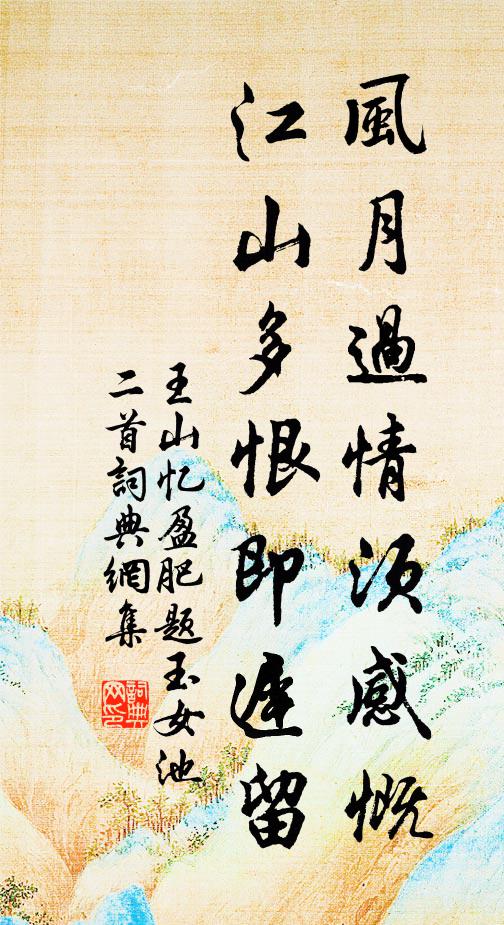 風月過情須感慨
江山多恨即遲留
王山忆盈肥題玉女池
二首詞典網集
詞典
網印